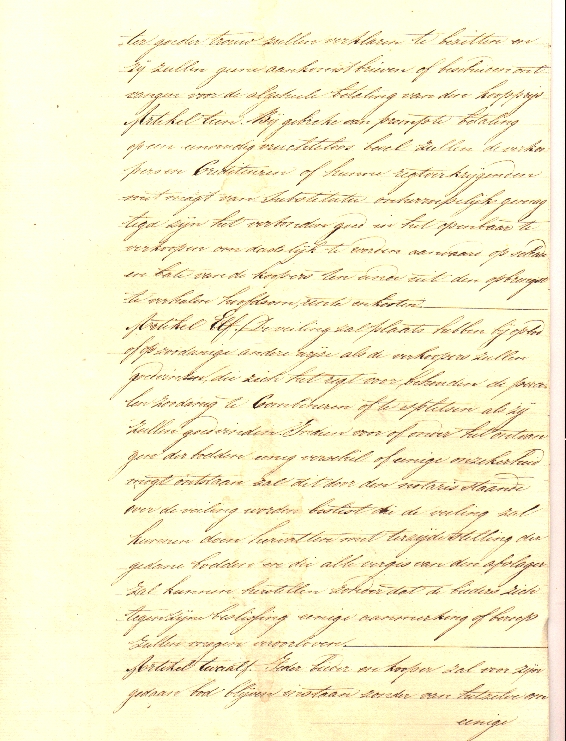 ter goeder trouw zullen verklaren te bezitten en
zij zullen geene aankomstbrieven of bescheiden ont
vangen voor de algeheele betaling van den koopprijs
Artikel tien. Bij gebreke van prompte betaling
op een onnoodig vruchteloos bevel zullen de verkoo
pers en Crediteuren of hunne regtverkrijgenden
met magt van substitutie onherroepelijk gemag
tigd zijn het verbonden goed in het openbaar te
verkoopen om dadelijk te worden aanvaard op
en bate van de koopers ten einde uit den opbrengst
te verhalen hoofdsom, rente en kosten.
Artikel Elf. De veiling zal plaats hebben bij opbod
of op zoodanige andere wijze als de verkoopers zullen
goedvinden, die zich het regt voorbehouden de perce
len zoodanig te Combineren of te splitsen als zij
zullen goedvinden. Indien voor of onder het ontvan
gen der boden eenig verschil of eenige onzekerheid
mogt ontstaan zal dit door den notaris staande
over de veiling worden beslist die de veiling zal
kunnen doen hervatten met terzijdestelling der
gedane boden en die alle vergissingen van den afslager
zal kunnen herstellen zonder dat de bieders zich
tegen zijne beslissing eenige aanmerking of beroep
zullen mogen veroorloven.
Artikel twaalf. Ieder bieder en kooper zal voor zijn
gedaan bod blijven instaan zonder van hetzelve om
eenige